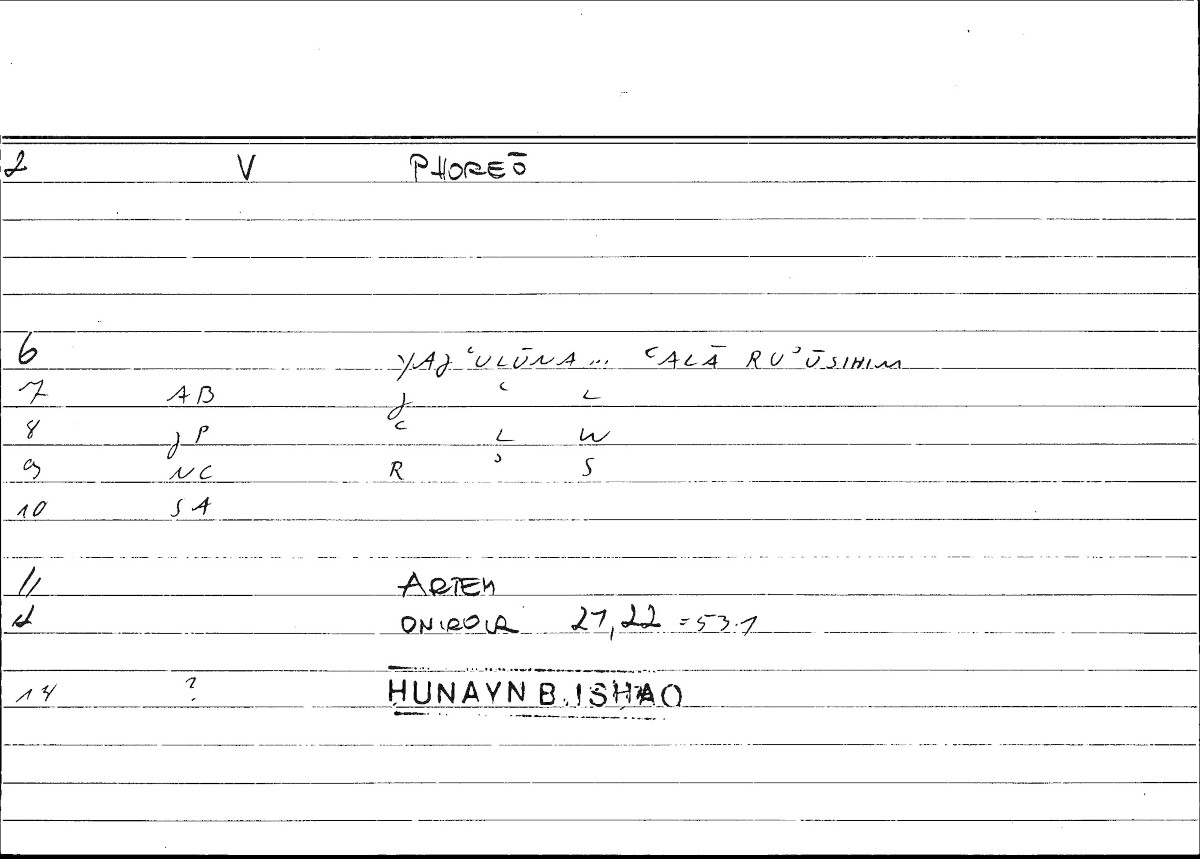 2 V PHOREŌ
6 YAJʿULŪNA... ʿALĀ RUʾŪSIHIM
7 AB J ʿ L
8 JP ʿ L W
9 NC R ʾ S
10 SA
11 ARTEM
ONIROCR 21,22 =53.1
14 ? HUNAYN B. ISHAQ